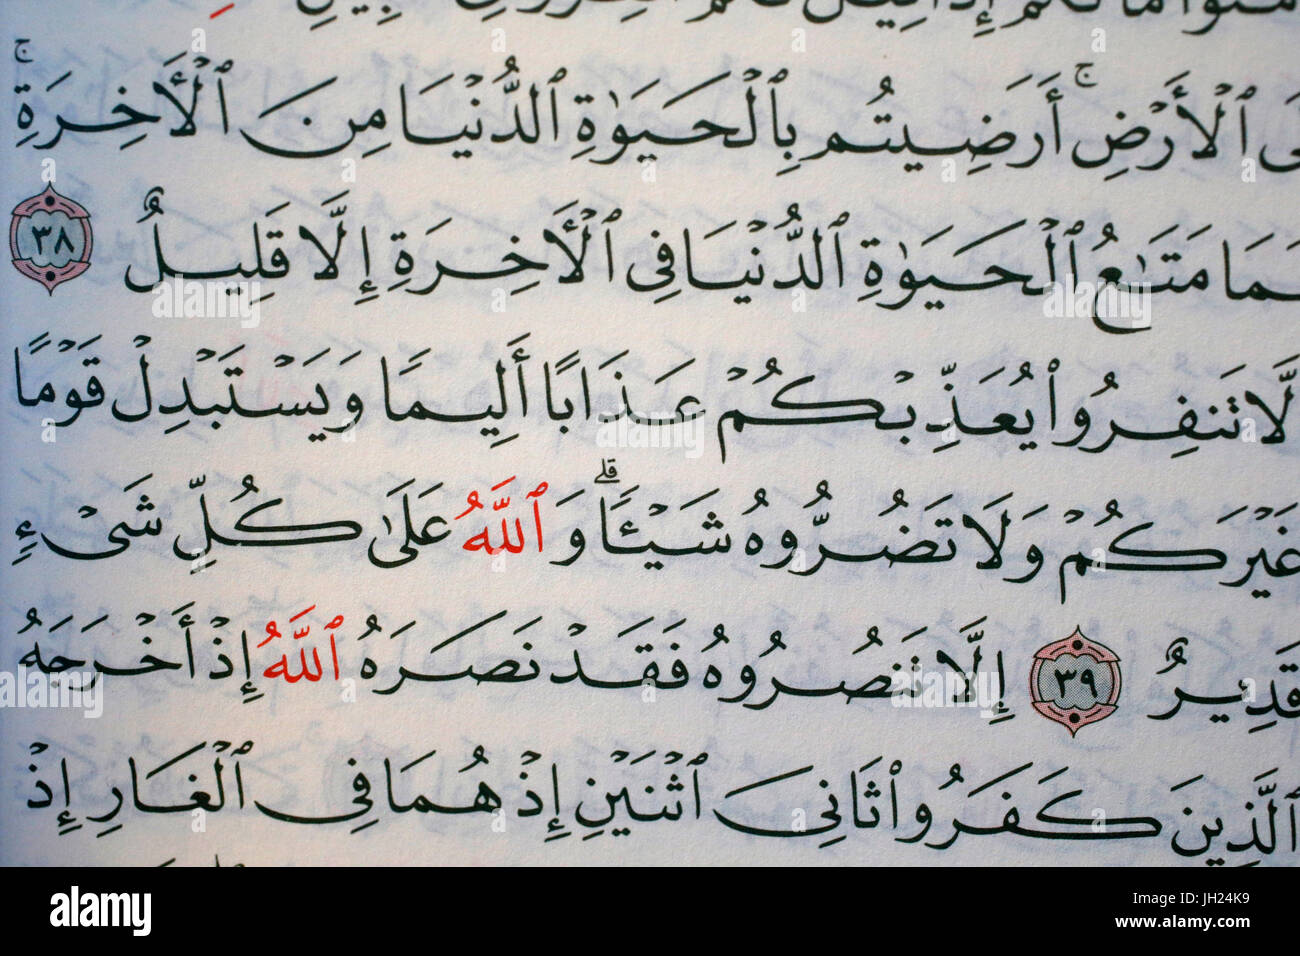 ٱلْأَرْضِ ۚ أَرَضِيتُم بِٱلْحَيَوٰةِ ٱلدُّنْيَا مِنَ ٱلْأَخِرَةِ ۚ
فَمَا مَتَـٰعُ ٱلْحَيَوٰةِ ٱلدُّنْيَا فِى ٱلْأَخِرَةِ إِلَّا قَلِيلٌ ٣٨
لَّا تَنفِرُوا۟ يُعَذِّبْكُمْ عَذَابًا أَلِيمًا وَيَسْتَبْدِلْ قَوْمًا
غَيْرَكُمْ وَلَا تَضُرُّوهُ شَيْـًٔا ۗ وَٱللَّهُ عَلَىٰ كُلِّ شَىْءٍ
قَدِيرٌ ٣٩ إِلَّا تَنصُرُوهُ فَقَدْ نَصَرَهُ ٱللَّهُ إِذْ أَخْرَجَهُ
ٱلَّذِينَ كَفَرُوا۟ ثَانِىَ ٱثْنَيْنِ إِذْ هُمَا فِى ٱلْغَارِ إِذْ
alamy stock photo
JH24K9
www.alamy.com